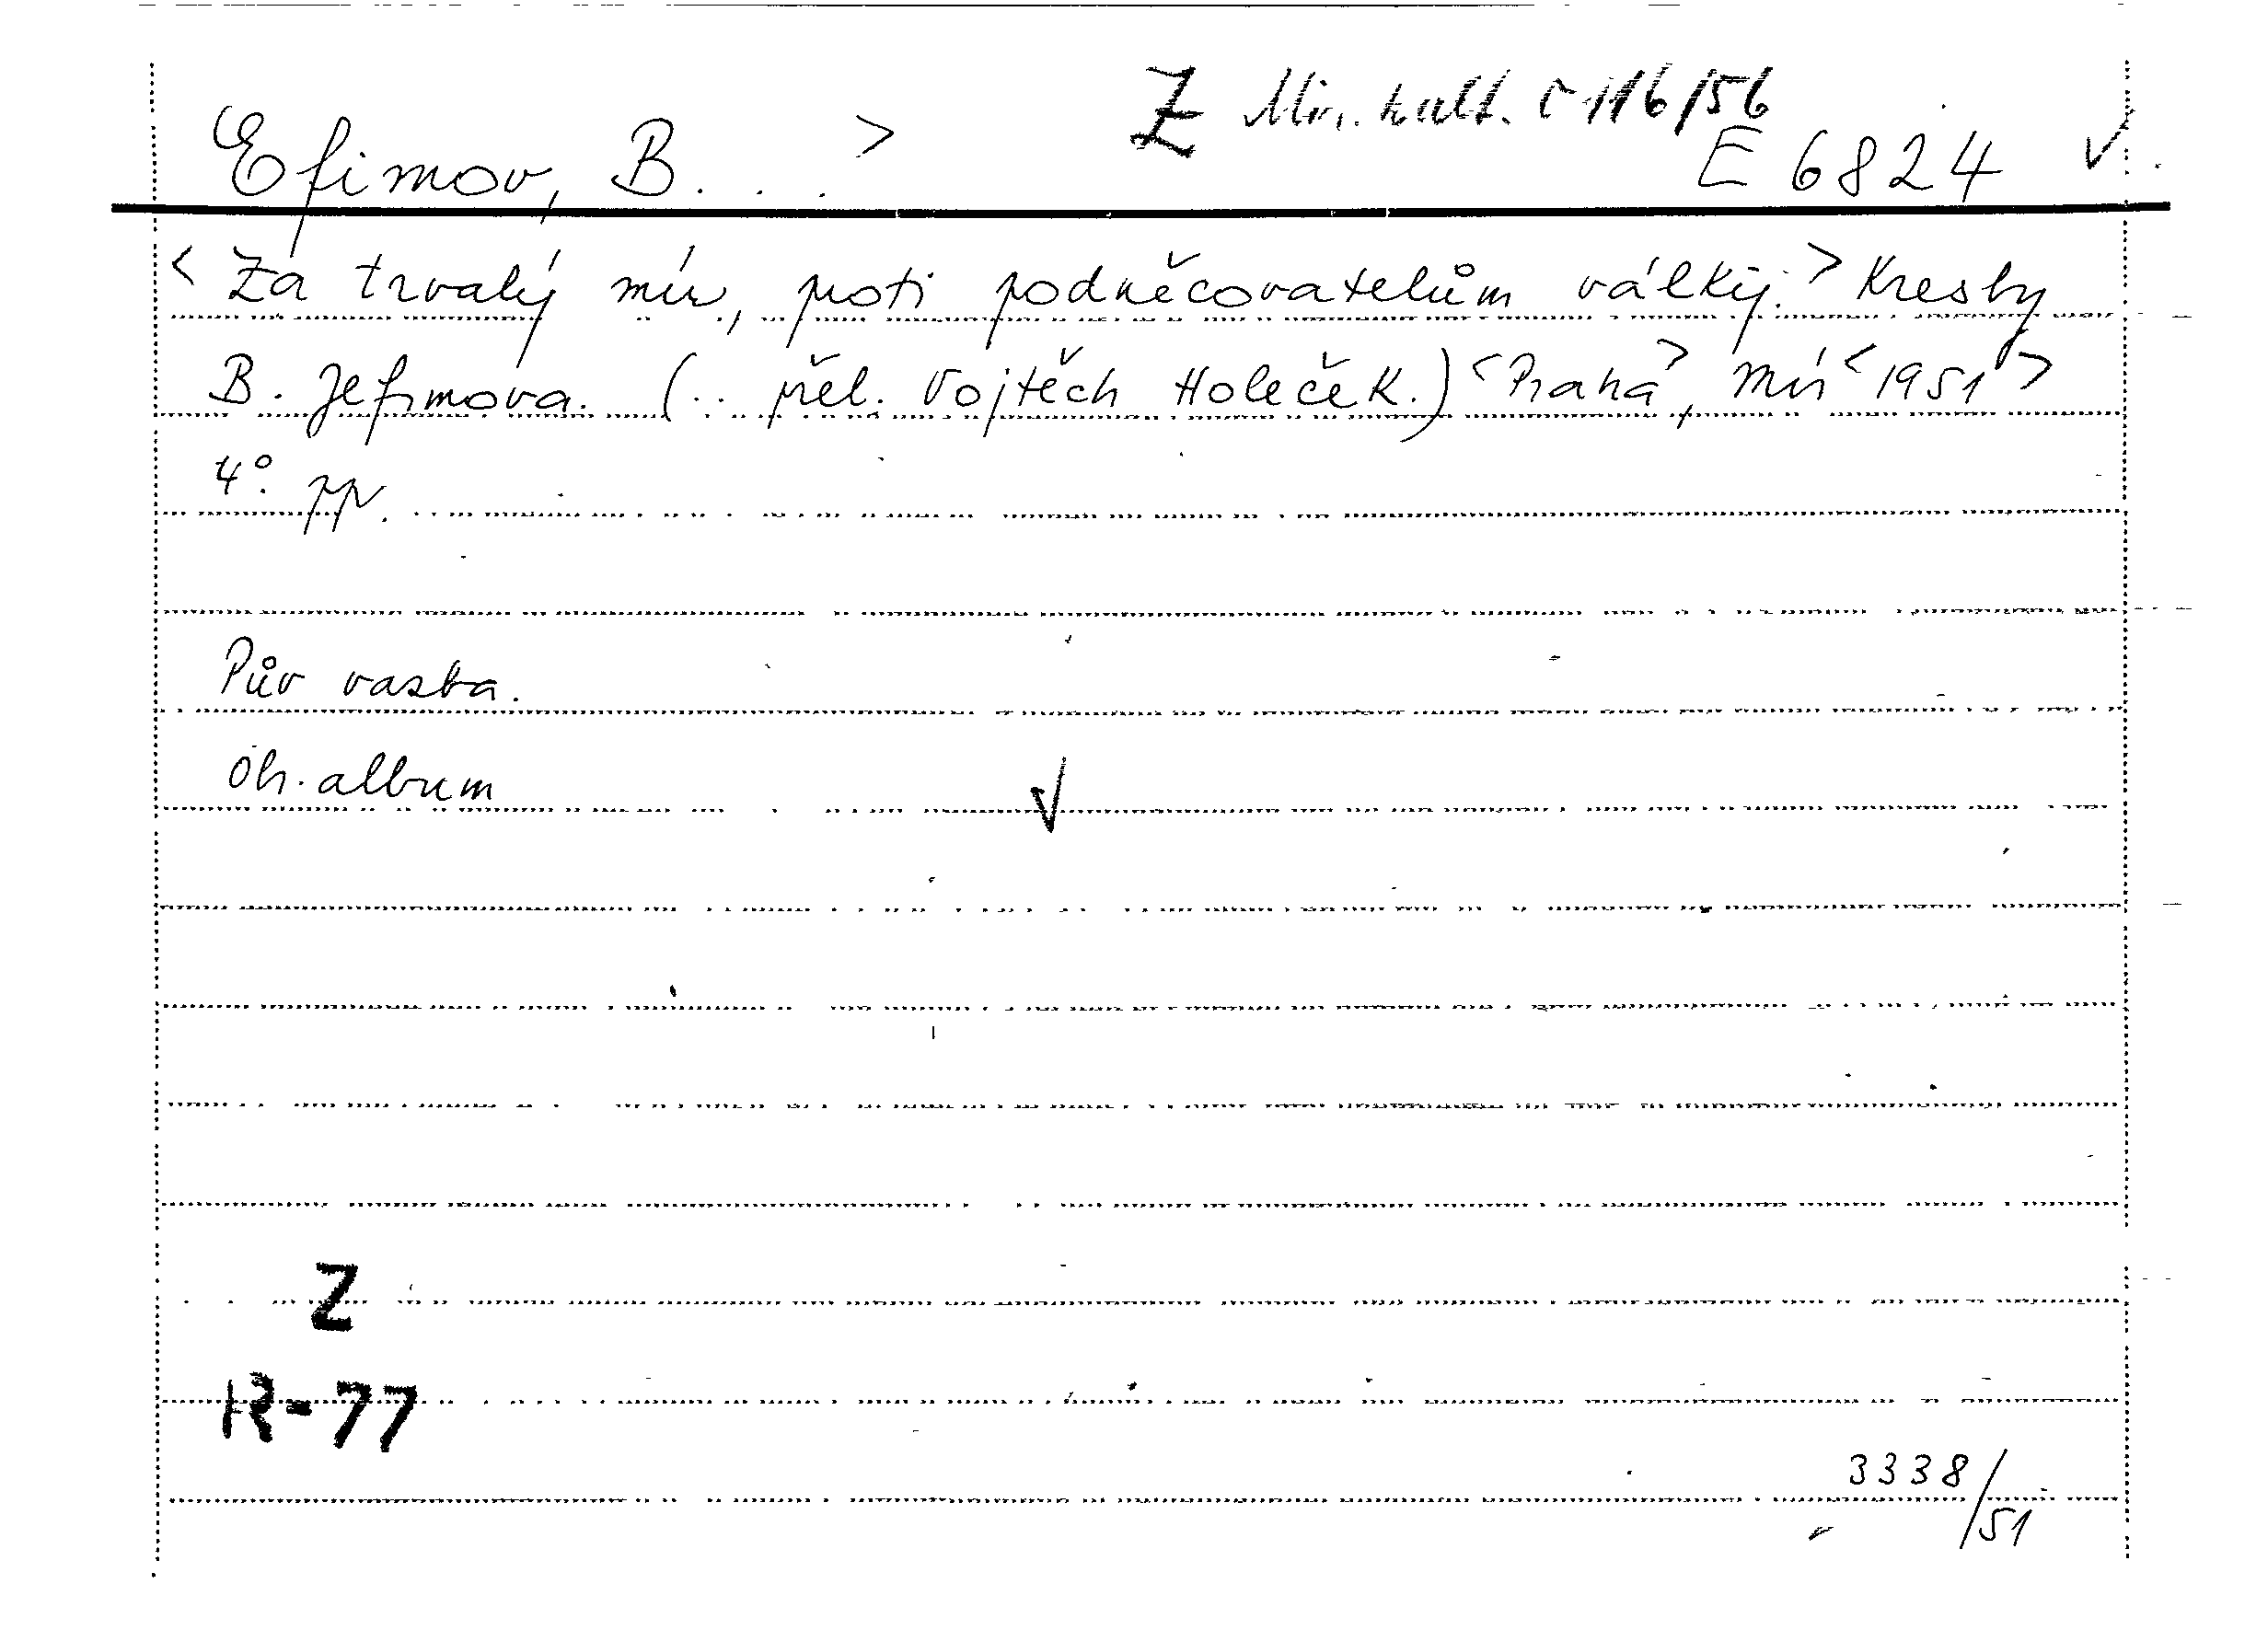 Z Min. kult. č 116/56
Efimov, B. . . > E 6824 √
<Za trvalý mír, proti podněcovatelům války.> Kresby
B. Jefimova. (.. přel. Vojtěch Holeček.) <Praha>, Mír <1951>
4°. pp.
Pův vazba.
Ob. album √
Z
R-77
3338/51